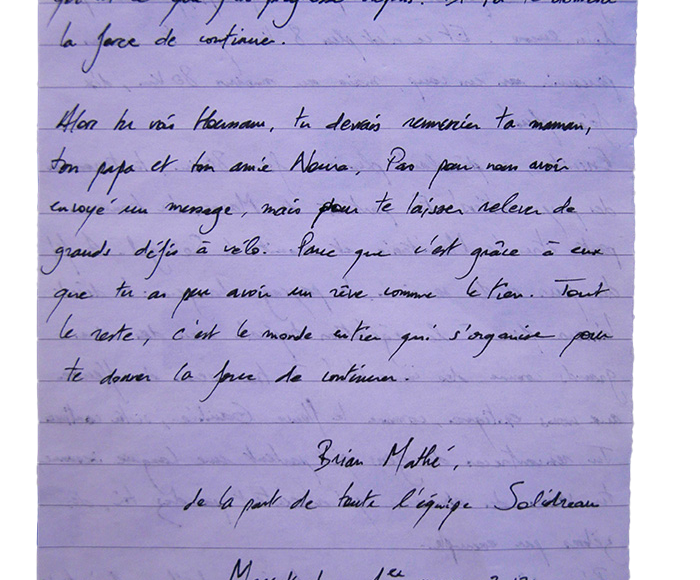 la force de continuer.
Alors tu vois Houssam, tu devrais remercier ta maman,
ton papa et ton amie Noura, Pas pour nous avoir
envoyé un message, mais pour te laisser relever de
grands défis à vélo. Parce que c'est grâce à eux
que tu as peu avoir un rêve comme le tien. Tout
le reste, c'est le monde entier qui s'organise pour
te donner la force de continuer.
Brian Mathé,
de la part de toute l'équipe Solidreau